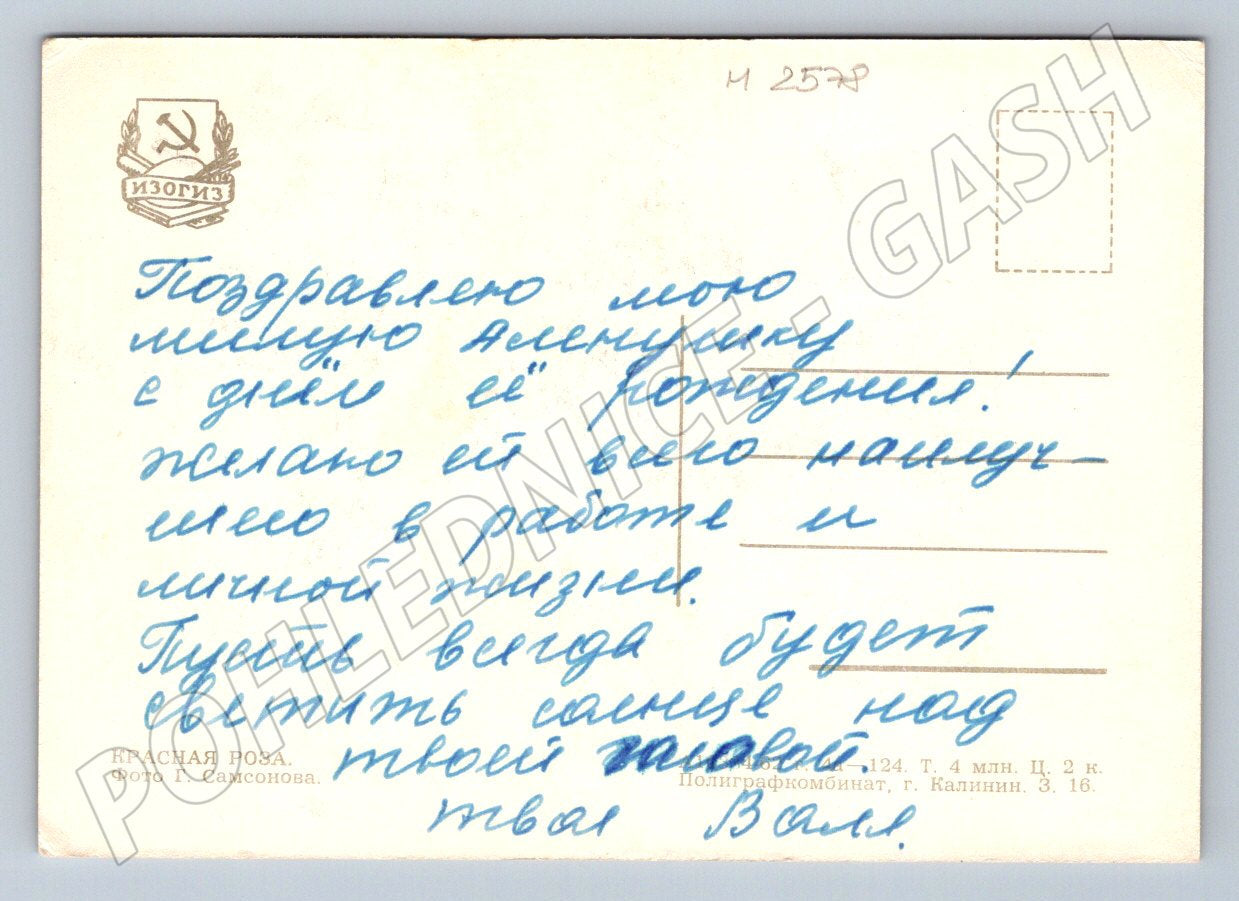 И 2578
ИЗОГИЗ
Поздравляю мою
милую Аленушку
с днём её рождения!
желаю ей всего наилуч-
шего в работе и
личной жизни.
Пусть всегда будет
светить солнце над
твоей головой.
твоя Валя.
КРАСНАЯ РОЗА.
Фото Г. Самсонова.
124. Т. 4 млн. Ц. 2 к.
Полиграфкомбинат, г. Калинин. З. 16.
POHLEDNICE - GASH